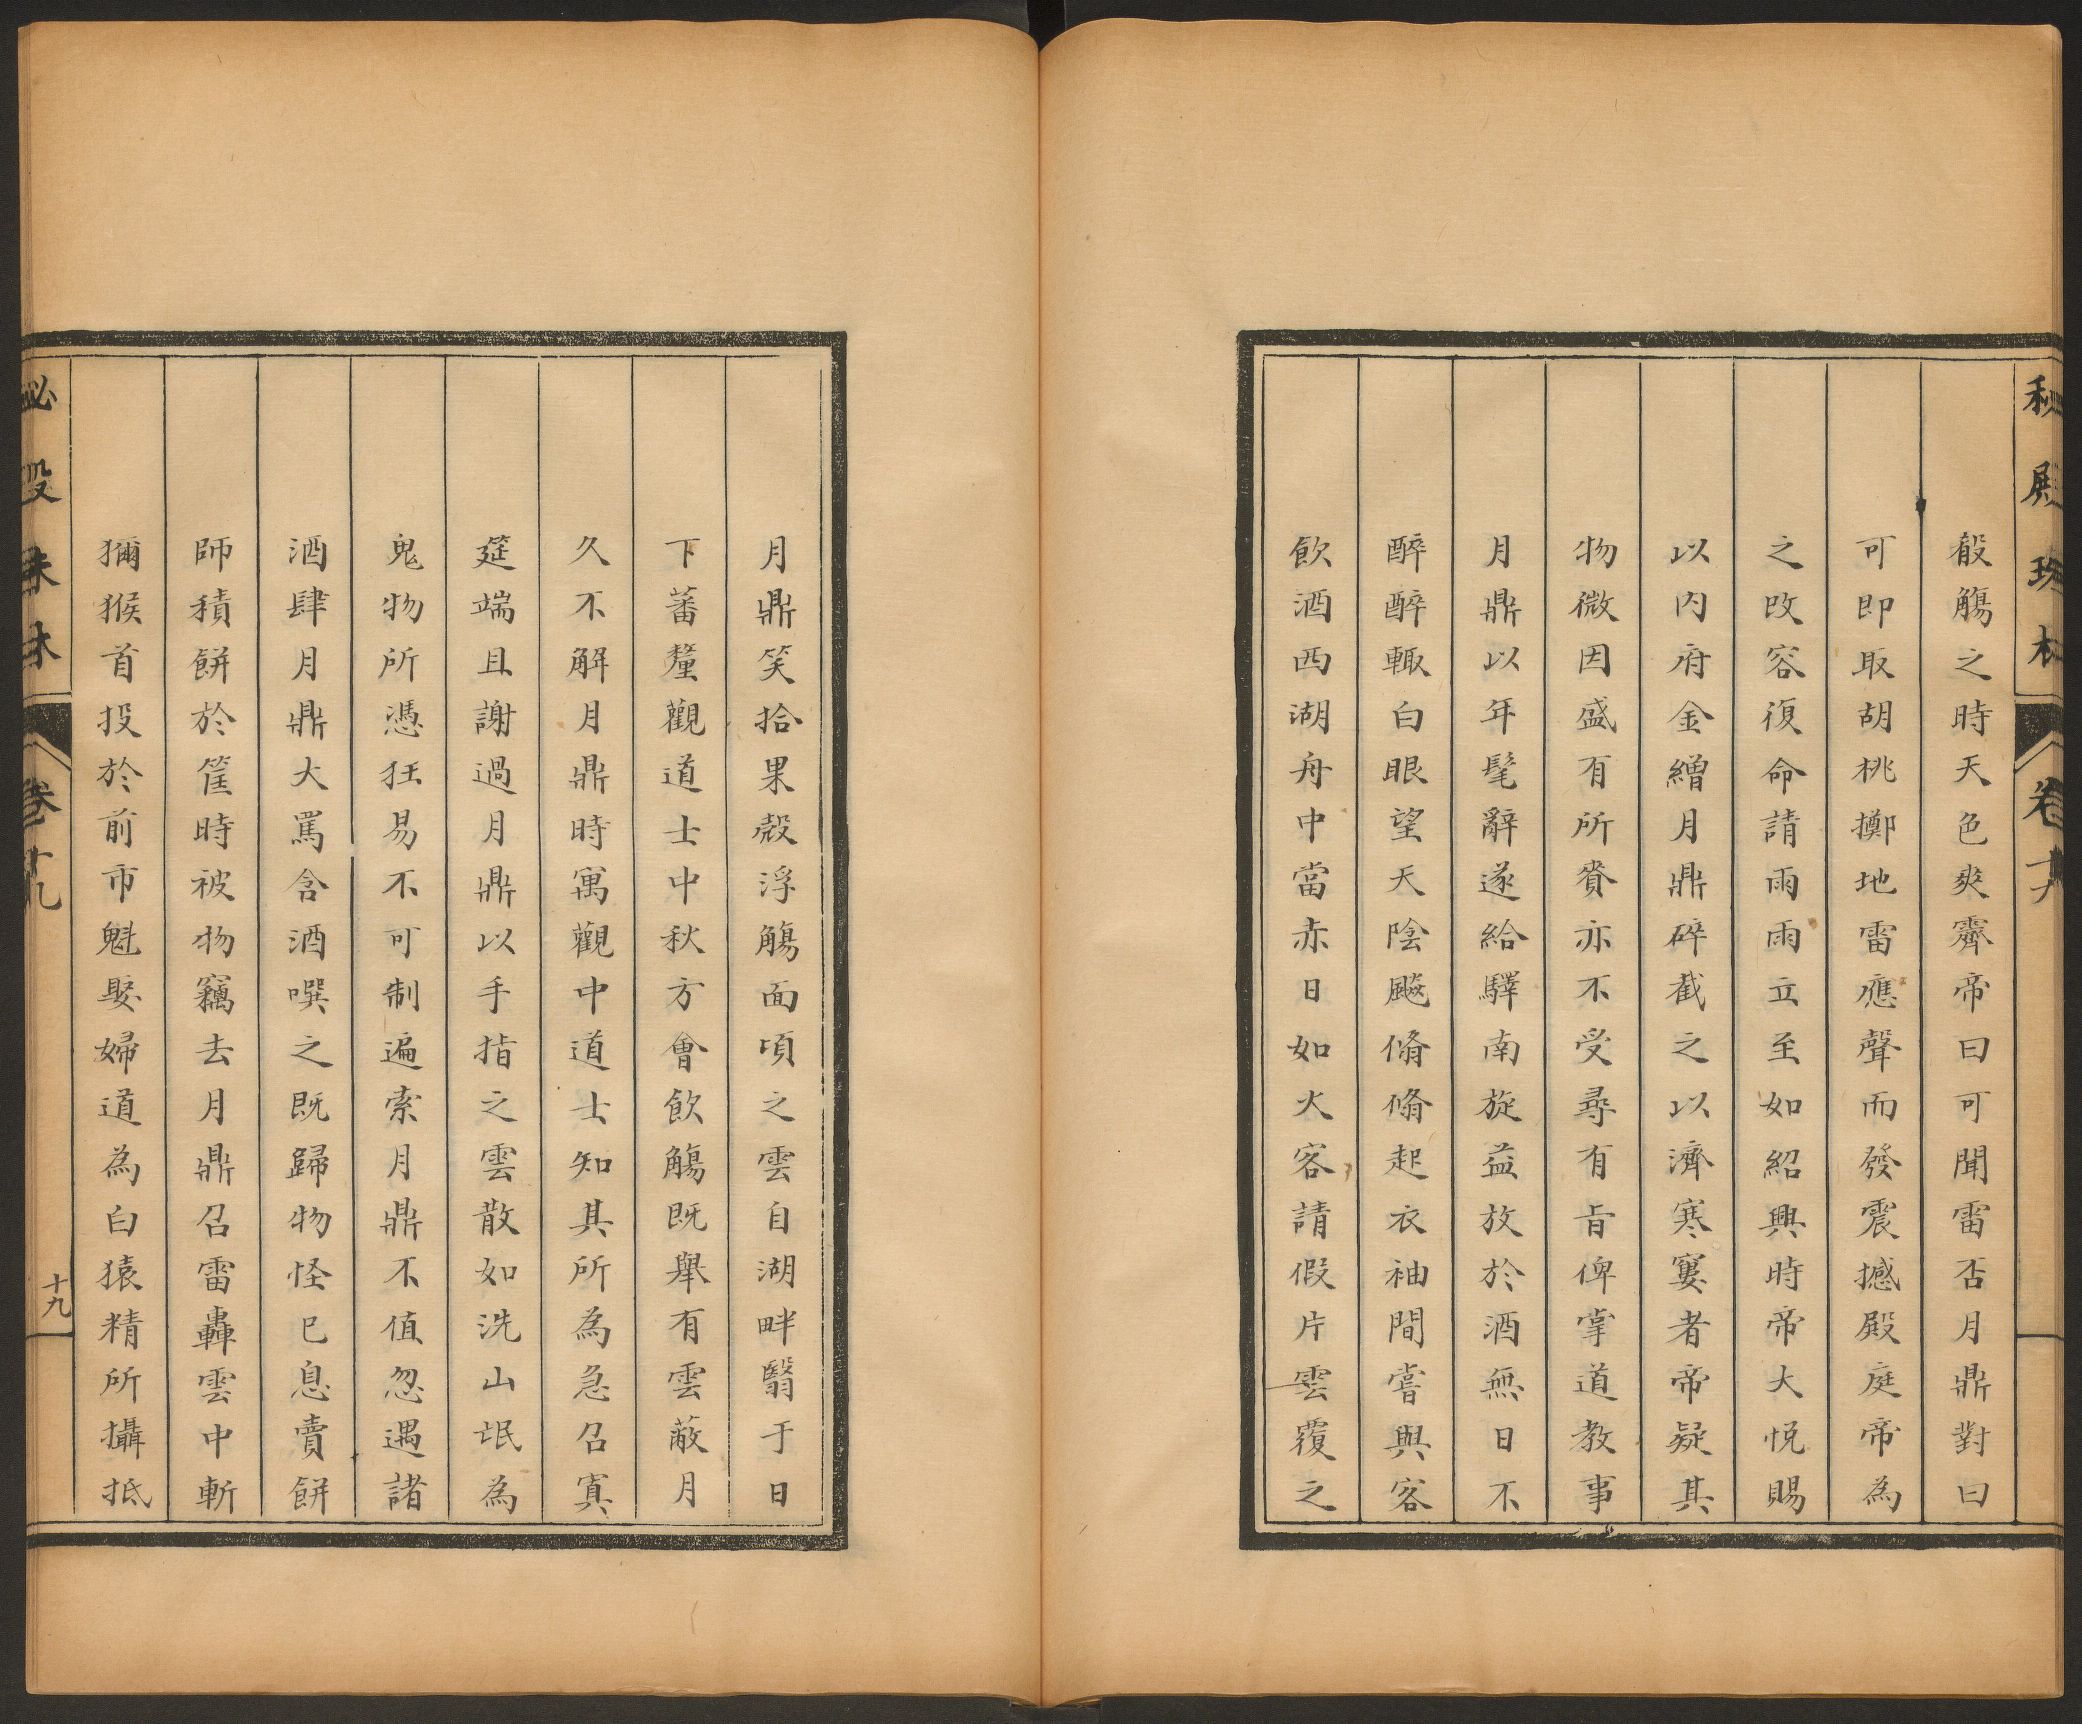 秘殿珠林 卷十九
殽觴之時天色爽霽帝曰可聞雷否月鼎對曰
可即取胡桃擲地雷應聲而發震撼殿庭帝為
之改容復命請雨雨立至如紹興時帝大悅賜
以内府金繒月鼎碎截之以濟寒窶者帝疑其
物微因盛有所賚亦不受尋有旨俾掌道教事
月鼎以年髦辭遂給驛南旋益放於酒無日不
醉醉輙白眼望天陰飈翛翛起衣袖間嘗與客
飲酒西湖舟中當赤日如火客請假片雲覆之
月鼎笑拾果殻浮觴面頃之雲自湖畔翳于日
下蕃釐觀道士中秋方會飲觴既舉有雲蔽月
久不解月鼎時寓觀中道士知其所為急召寘
筵端且謝過月鼎以手指之雲散如洗山氓為
鬼物所憑狂易不可制遍索月鼎不值忽遇諸
酒肆月鼎大罵含酒噀之既歸物怪已息賣餅
師積餅於筐時被物竊去月鼎召雷轟雲中斬
獼猴首投於前市魁娶婦道為白猿精所攝抵
秘殿珠林 卷十九 十九